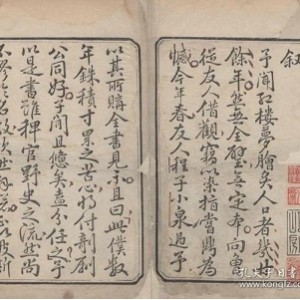 叙
予聞紅樓夢膾炙人口者幾廿
餘年然無全璧無定本向曾
從友人借觀竊以染指嘗鼎為
憾今年春友人程子小泉過予
以其所購全書見示且曰此僕數
年銖積寸累之苦心將付剞劂
公同好子閒且憊矣盍分任之予
以是書雖稗官野史之流然尚